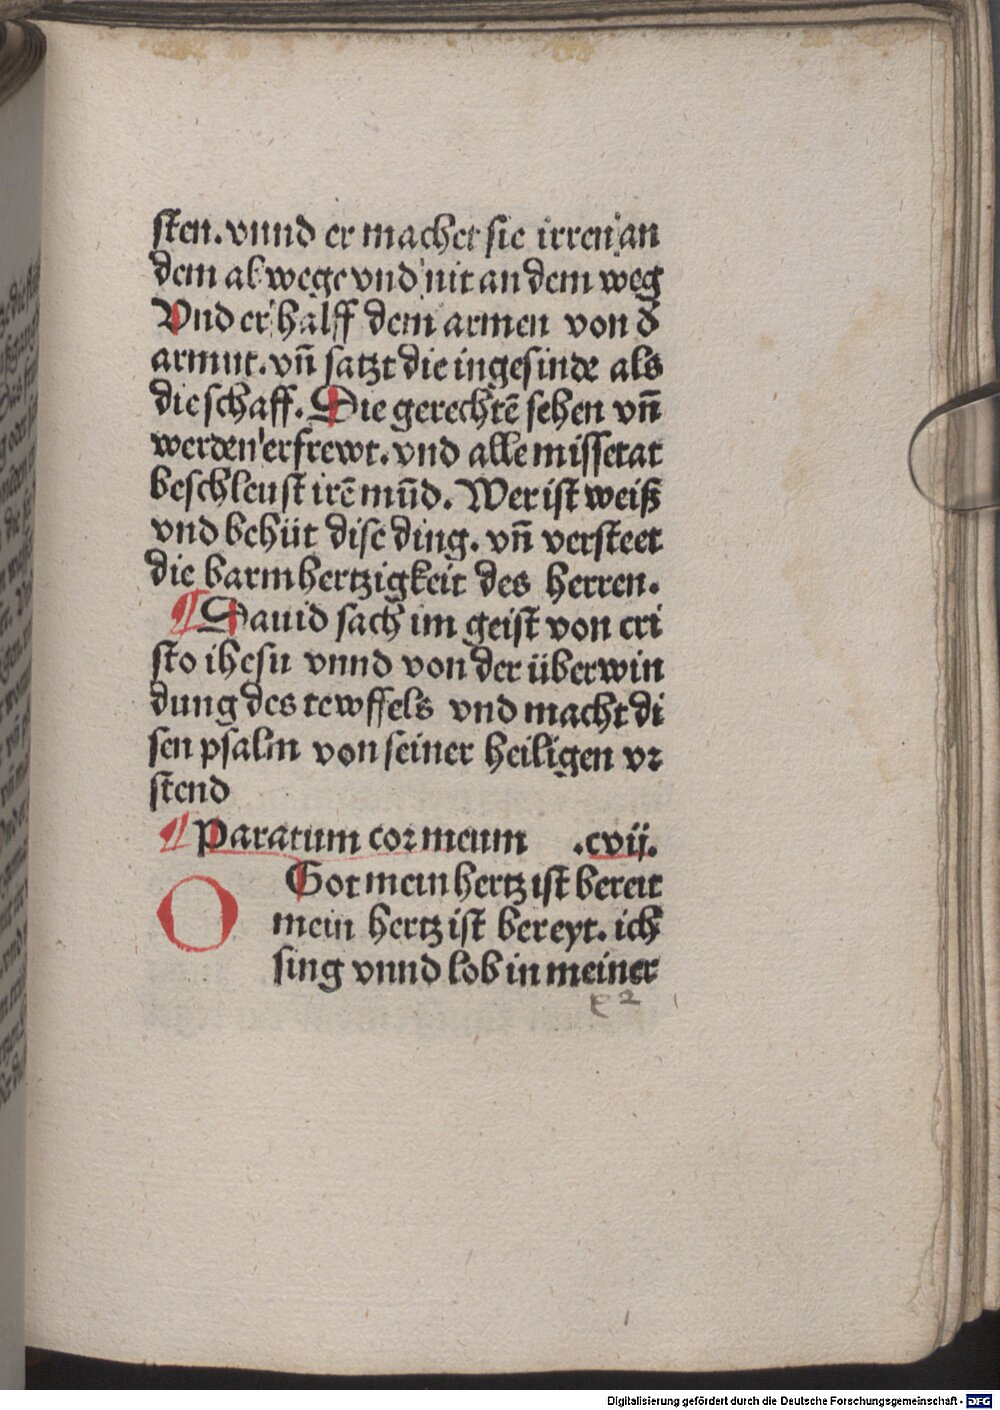 sten. vnnd er machet sie irren an
dem abwege vnd nit an dem weg
Vnd er halff dem armen von d̕
armut. vñ satzt die ingesinde als
die schaff. Die gerechtē sehen vñ
werden erfrewt. vnd alle missetat
beschleust irē mūd. Wer ist weiß
vnd behüt dise ding. vñ versteet
die barmhertzigkeit des herren.
¶ Dauid sach im geist von cri
sto ihesu vnnd von der überwin
dung des tewffels vnd macht di
sen psalm von seiner heiligen vr
stend
¶ Paratum cor meum .cvij.
O Got mein hertz ist bereit
mein hertz ist bereyt. ich
sing vnnd lob in meiner
Digitalisierung gefördert durch die Deutsche Forschungsgemeinschaft - DFG